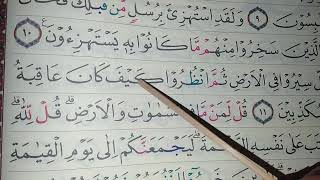 يَلْبِسُونَ ٩ وَلَقَدِ اسْتُهْزِئَ بِرُسُلٍ مِنْ قَبْلِكَ فَحَاقَ
الَّذِينَ سَخِرُوا مِنْهُمْ مَا كَانُوا بِهِ يَسْتَهْزِءُونَ ١٠
سِيرُوا فِي الْاَرْضِ ثُمَّ انْظُرُوا كَيْفَ كَانَ عَاقِبَةُ
الْمُكَذِّبِينَ ١١ قُلْ لِمَنْ مَا فِي السَّمٰوَاتِ وَالْاَرْضِ قُلْ لِلّٰهِ
كَتَبَ عَلٰى نَفْسِهِ الرَّحْمَةَ لَيَجْمَعَنَّكُمْ اِلٰى يَوْمِ الْقِيٰمَةِ